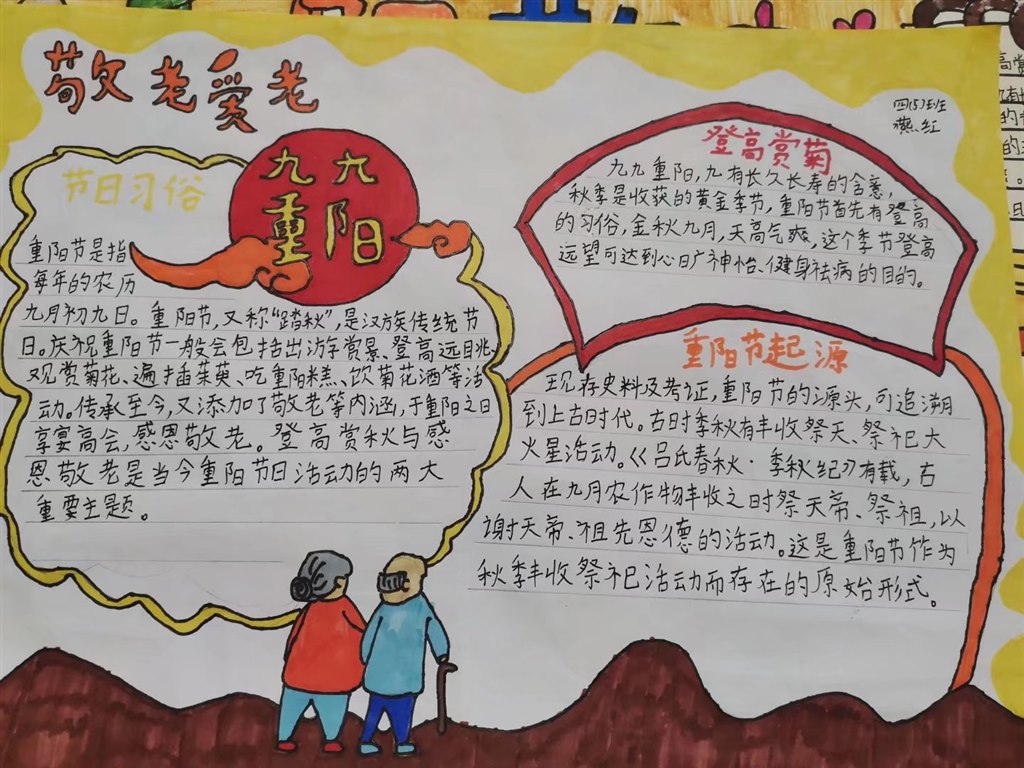 敬老爱老
四(5)班
燕、红
节日习俗
九九
重阳
重阳节是指
每年的农历
九月初九日。重阳节,又称“踏秋”,是汉族传统节
日。庆祝重阳节一般会包括出游赏景、登高远眺、
观赏菊花、遍插茱萸、吃重阳糕、饮菊花酒等活
动。传承至今,又添加了敬老等内涵,于重阳之日
享宴高会,感恩敬老。登高赏秋与感
恩敬老是当今重阳节日活动的两大
重要主题。
登高赏菊
九九重阳,九有长久长寿的含意,
秋季是收获的黄金季节,重阳节首先有登高
的习俗,金秋九月,天高气爽,这个季节登高
远望可达到心旷神怡、健身祛病的目的。
重阳节起源
现存史料及考证,重阳节的源头,可追溯
到上古时代。古时季秋有丰收祭天、祭祀大
火星活动。《吕氏春秋·季秋纪》有载,古
人在九月农作物丰收之时祭天帝、祭祖,以
谢天帝、祖先恩德的活动。这是重阳节作为
秋季丰收祭祀活动而存在的原始形式。